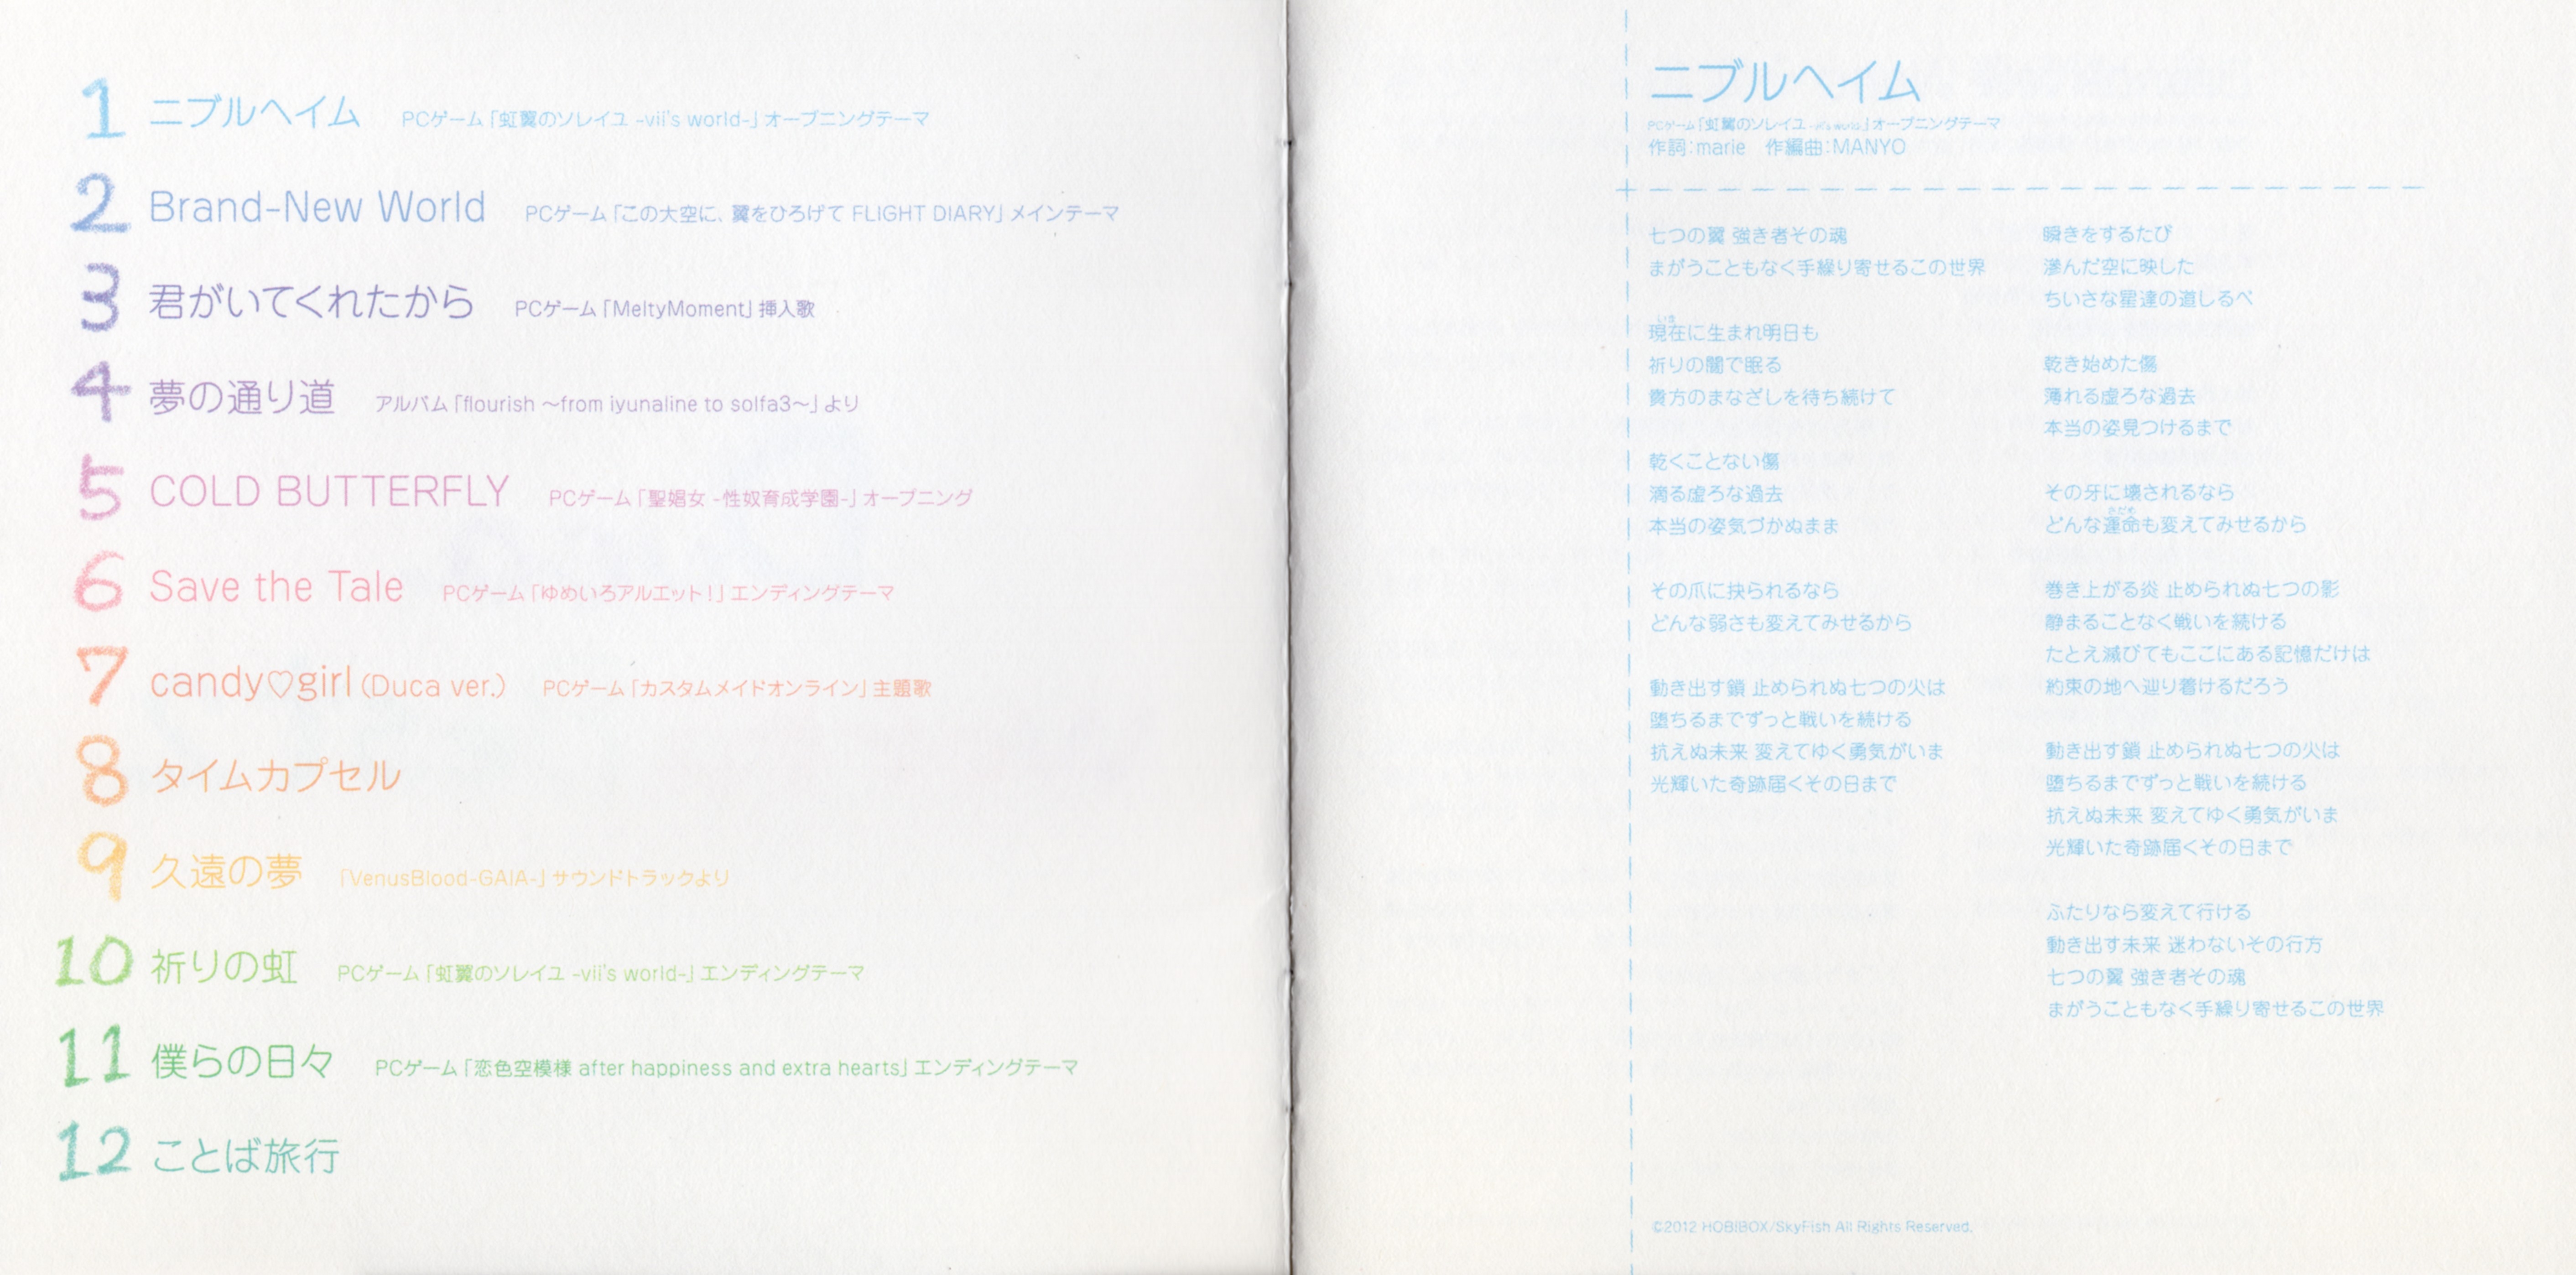 1 ニブルヘイム PCゲーム「虹翼のソレイユ -vii's world-」オープニングテーマ
2 Brand-New World PCゲーム「この大空に、翼をひろげて FLIGHT DIARY」メインテーマ
3 君がいてくれたから PCゲーム「MeltyMoment」挿入歌
4 夢の通り道 アルバム「flourish ～from iyunaline to solfa3～」より
5 COLD BUTTERFLY PCゲーム「聖娼女 -性奴育成学園-」オープニング
6 Save the Tale PCゲーム「ゆめいろアルエット！」エンディングテーマ
7 candy♡girl (Duca ver.) PCゲーム「カスタムメイドオンライン」主題歌
8 タイムカプセル
9 久遠の夢 「VenusBlood-GAIA-」サウンドトラックより
10 祈りの虹 PCゲーム「虹翼のソレイユ -vii's world-」エンディングテーマ
11 僕らの日々 PCゲーム「恋色空模様 after happiness and extra hearts」エンディングテーマ
12 ことば旅行
ニブルヘイム
PCゲーム「虹翼のソレイユ -vii's world-」オープニングテーマ
作詞：marie 作編曲：MANYO
七つの翼 強き者その魂
まがうこともなく手繰り寄せるこの世界
いま
現在に生まれ明日も
祈りの闇で眠る
貴方のまなざしを待ち続けて
乾くことない傷
滴る虚ろな過去
本当の姿気づかぬまま
その爪に抉られるなら
どんな弱さも変えてみせるから
動き出す鎖 止められぬ七つの火は
堕ちるまでずっと戦いを続ける
抗えぬ未来 変えてゆく勇気がいま
光輝いた奇跡届くその日まで
瞬きをするたび
滲んだ空に映した
ちいさな星達の道しるべ
乾き始めた傷
薄れる虚ろな過去
本当の姿見つけるまで
その牙に壊されるなら
さだめ
どんな運命も変えてみせるから
巻き上がる炎 止められぬ七つの影
静まることなく戦いを続ける
たとえ滅びてもここにある記憶だけは
約束の地へ辿り着けるだろう
動き出す鎖 止められぬ七つの火は
堕ちるまでずっと戦いを続ける
抗えぬ未来 変えてゆく勇気がいま
光輝いた奇跡届くその日まで
ふたりなら変えて行ける
動き出す未来 迷わないその行方
七つの翼 強き者その魂
まがうこともなく手繰り寄せるこの世界
©2012 HOBIBOX/SkyFish All Rights Reserved.